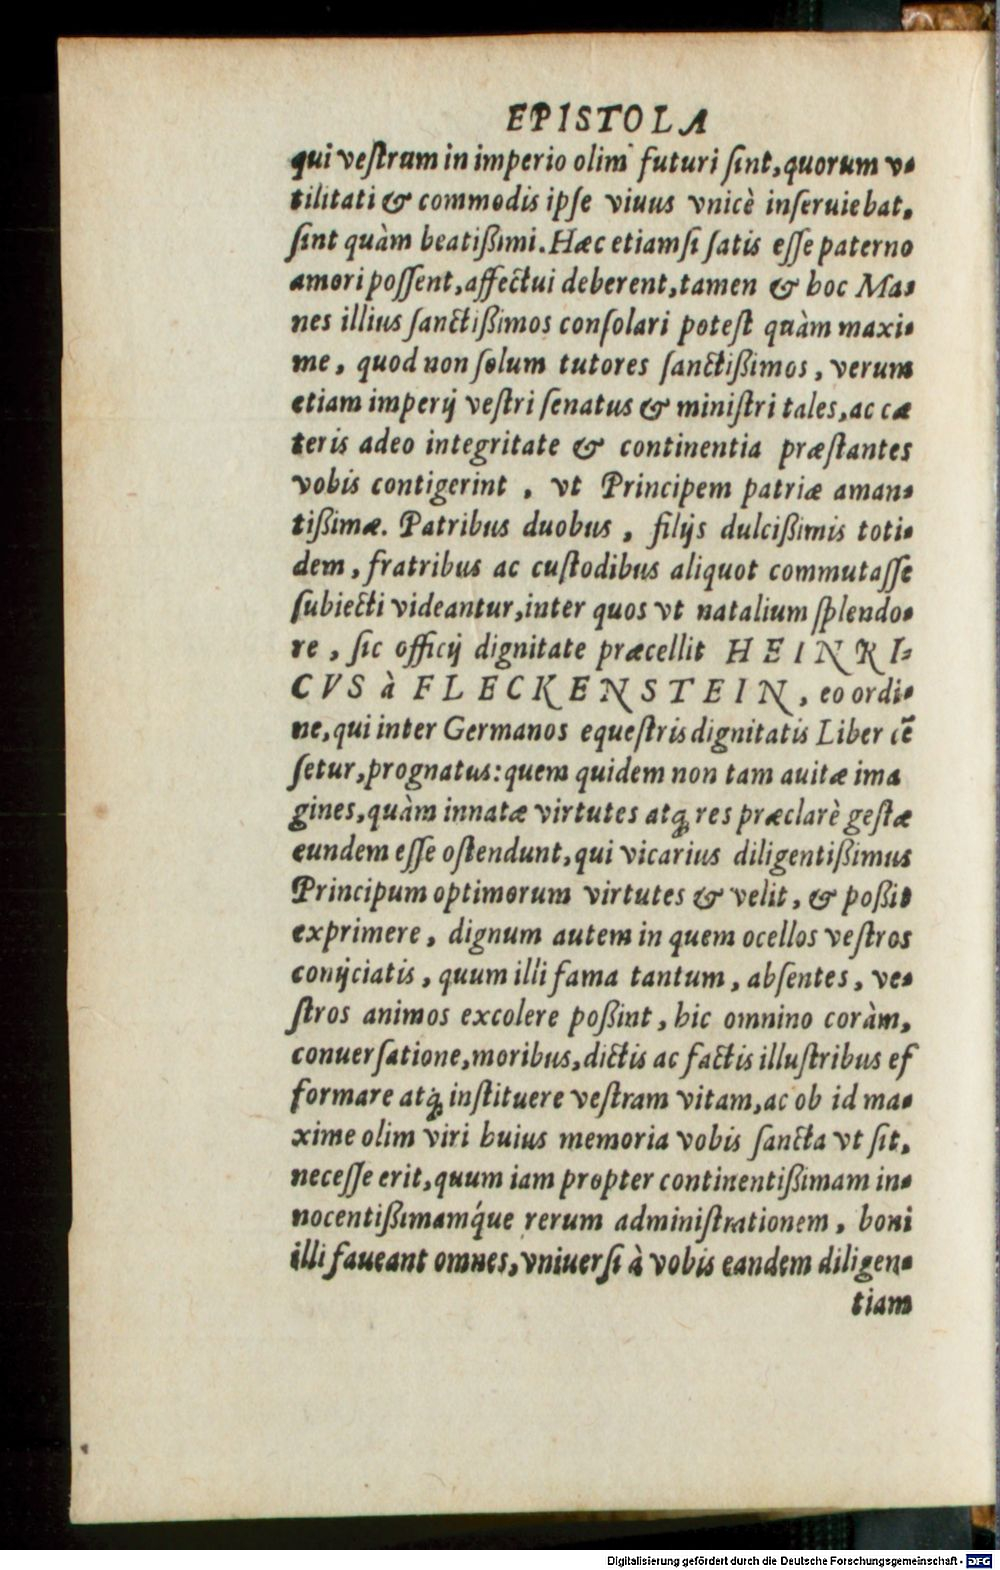 EPISTOLA
qui veſtrum in imperio olim futuri ſint, quorum v-
tilitati & commodis ipſe viuus vnicè inſeruiebat,
ſint quàm beatißimi. Hæc etiamſi ſatis eſſe paterno
amori poſſent, affectui deberent, tamen & hoc Ma-
nes illius ſanctißimos conſolari poteſt quàm maxi-
me, quod non ſolum tutores ſanctißimos, verum
etiam imperij veſtri ſenatus & miniſtri tales, ac cæ
teris adeo integritate & continentia præſtantes
vobis contigerint, vt Principem patriæ aman-
tißimæ. Patribus duobus, filijs dulcißimis toti-
dem, fratribus ac cuſtodibus aliquot commutaſſe
ſubiecti videantur, inter quos vt natalium ſplendo-
re, ſic officij dignitate præcellit HEINRI-
CVS à FLECKENSTEIN, eo ordi-
ne, qui inter Germanos equeſtris dignitatis Liber cē
ſetur, prognatus: quem quidem non tam auitæ ima
gines, quàm innatæ virtutes atq; res præclarè geſtæ
eundem eſſe oſtendunt, qui vicarius diligentißimus
Principum optimorum virtutes & velit, & poßit
exprimere, dignum autem in quem ocellos veſtros
conijciatis, quum illi fama tantum, abſentes, ve-
ſtros animos excolere poßint, hic omnino coràm,
conuerſatione, moribus, dictis ac factis illuſtribus ef
formare atq; inſtituere veſtram vitam, ac ob id ma-
xime olim viri huius memoria vobis ſancta vt ſit,
neceſſe erit, quum iam propter continentißimam in-
nocentißimamq́ue rerum adminiſtrationem, boni
illi faueant omnes, vniuerſi à vobis eandem diligen-
tiam
Digitalisierung gefördert durch die Deutsche Forschungsgemeinschaft - DFG